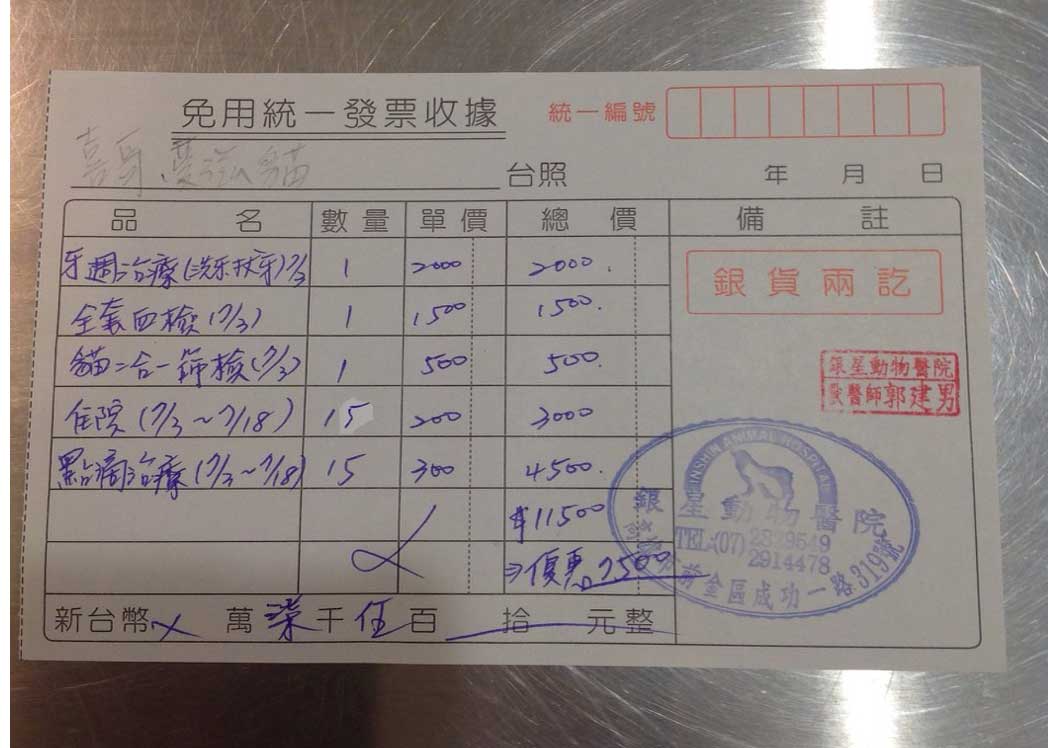 免用統一發票收據 統一編號
台照 年 月 日
品名 數量 單價 總價 備註
牙週治療(洗牙拔牙)7/3 1 2000 2000.
全套血檢(7/3) 1 1500 1500.
貓二合一篩檢(7/3) 1 500 500.
住院(7/3~7/18) 15 200 3000
點滴治療(7/3~7/18) 15 300 4500.
$11500
⇒優惠 7500
新台幣 萬 柒 千 伍 百 拾 元整
銀貨兩訖
銀星動物醫院
獸醫師郭建男
YINSHIN ANIMAL HOSPITAL
銀星動物醫院
TEL:(07)
2914478
市前金區成功一路319號